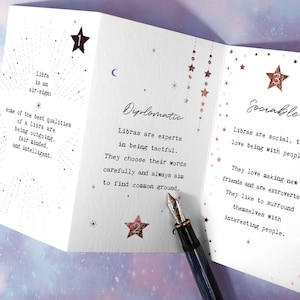 1
Libra
is an
air-sign:
some of the best qualities
of a Libra are
being outgoing,
fair minded,
and intelligent.
Diplomatic
Libras are experts
in being tactful.
They choose their words
carefully and always aim
to find common ground.
2
3
Sociable
Libras are social, t
love being with people
They love making new
friends and are extroverts
They like to surround
themselves with
interesting people.